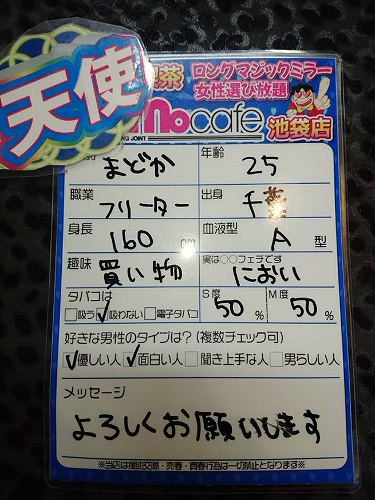 天使
喫茶
ロングマジックミラー
女性選び放題
mocafe
池袋店
まどか
年齢
25
職業
フリーター
出身
千葉
身長
160 cm
血液型
A 型
趣味
買い物
実は○○フェチです
におい
タバコは
□吸う ☑吸わない □電子タバコ
S度
50 %
M度
50 %
好きな男性のタイプは?(複数チェック可)
☑優しい人 ☑面白い人 □聞き上手な人 □男らしい人
メッセージ
よろしくお願いします
※当店は援助交際・売春・買春行為は一切禁止となります※